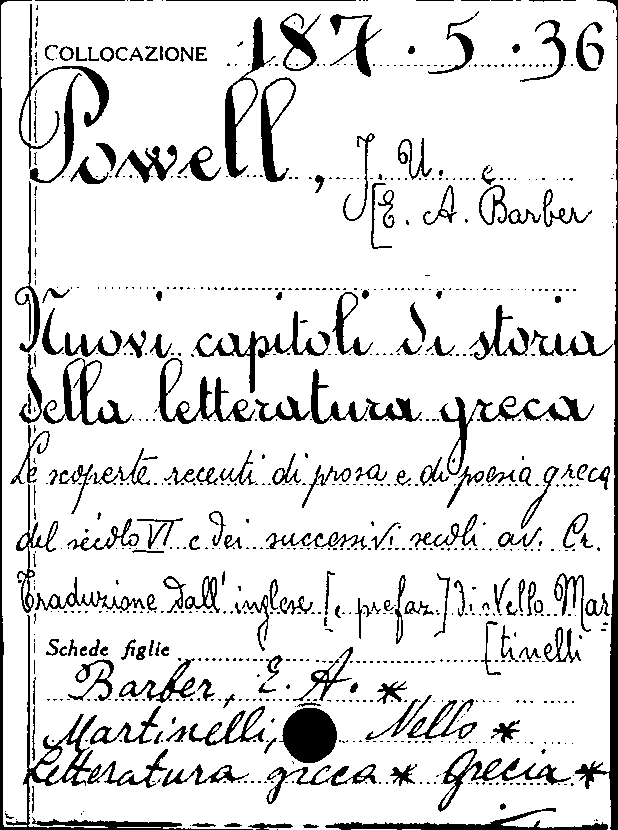 COLLOCAZIONE 187.5.36
Powell, J. U. e
[E. A. Barber
Nuovi capitoli di storia
della letteratura greca
Le scoperte recenti di prosa e di poesia greca
del secolo VI e dei successivi secoli av. Cr.
Traduzione dall'inglese [e prefaz.] di Nello Mar
[tinelli
Schede figlie
Barber, E. A. *
Martinelli, Nello *
Letteratura greca * Grecia *